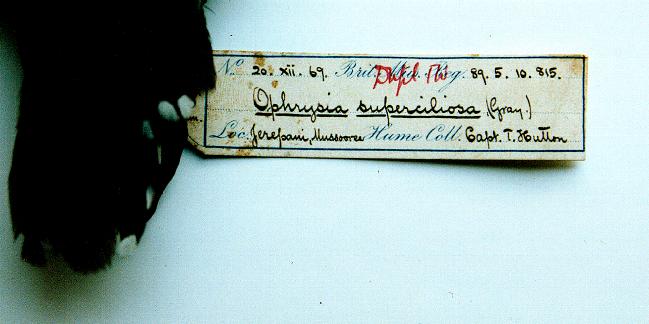 No. 20. xii. 69. Brit. Mus. Reg. 89. 5. 10. 815.
Ophrysia superciliosa (Gray.)
Loc. Jerepani, Mussooree Hume Coll. Capt. T. Hutton